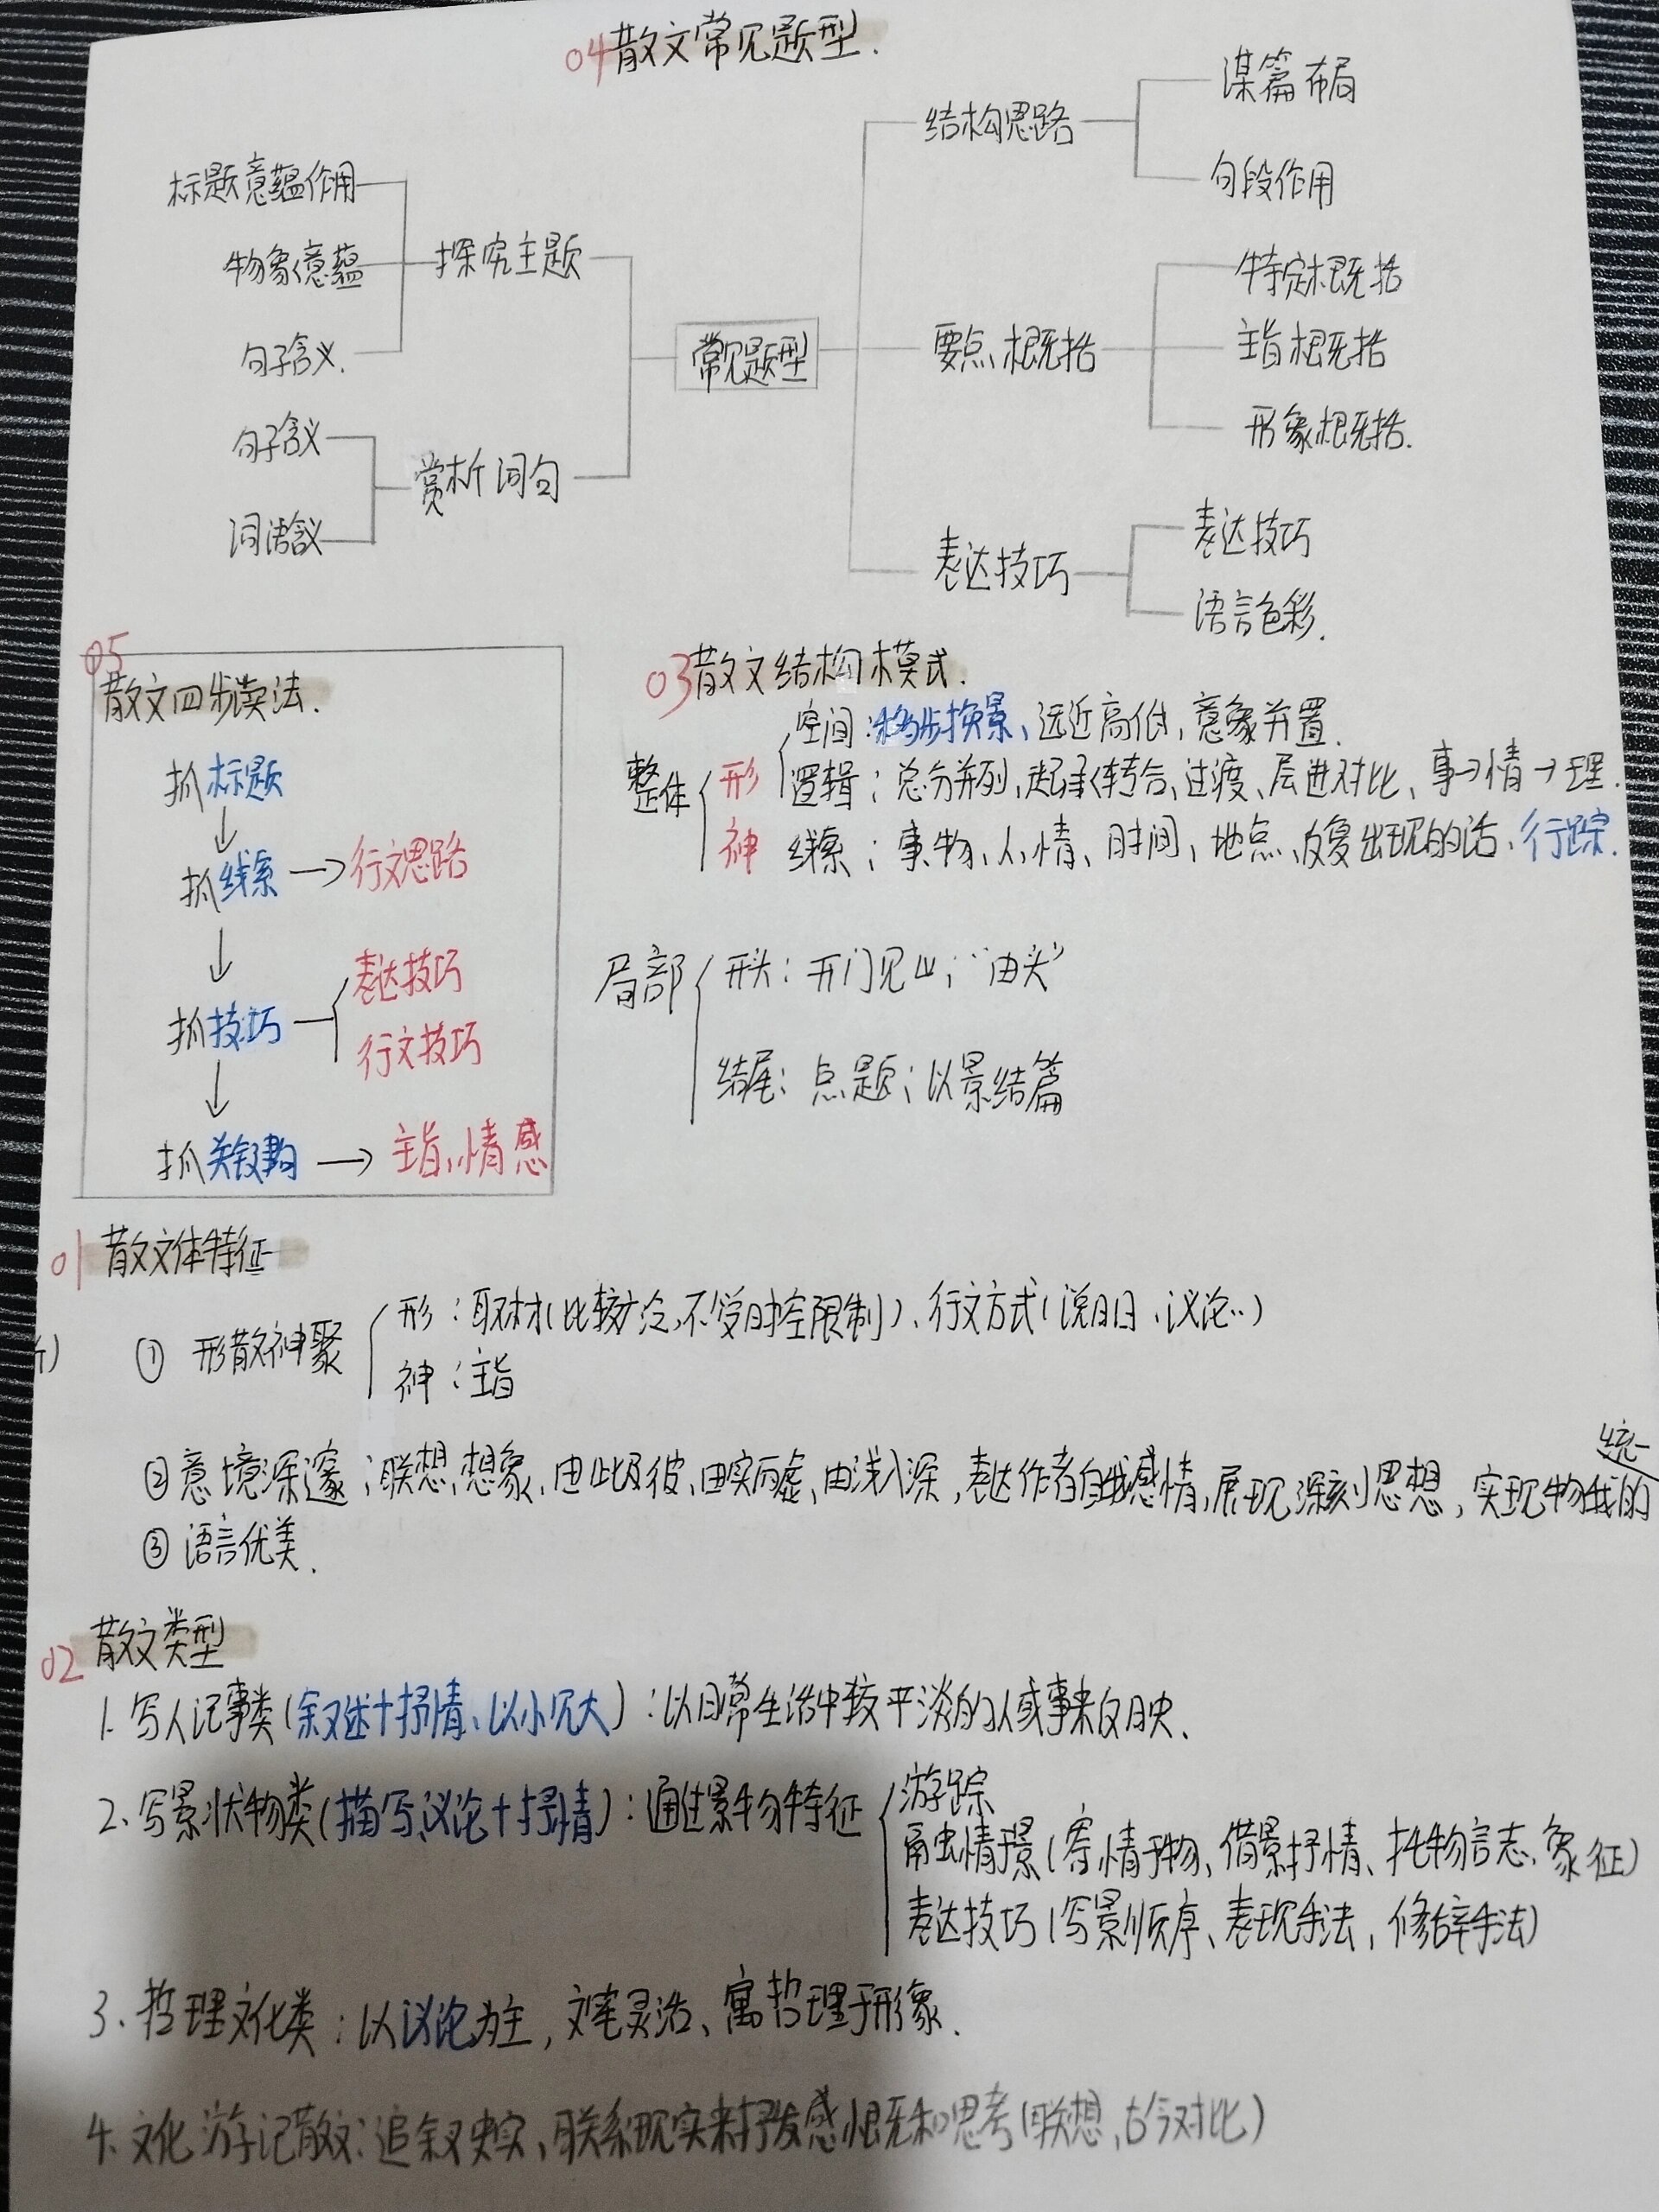 04散文常见题型.
标题意蕴作用
物象意蕴
句子含义.
探究主题
句子含义
词语含义
赏析词句
常见题型
结构思路
谋篇布局
句段作用
要点概括
特定概括
主旨概括
形象概括.
表达技巧
表达技巧
语言色彩.
05
散文四步读法.
抓标题
↓
抓线索→行文思路
↓
抓技巧
表达技巧
行文技巧
↓
抓关键句→主旨、情感
03散文结构模式.
整体
形
空间:移步换景、远近高低,意象并置.
逻辑:总分并列、起承转合、过渡、层进对比、事→情→理.
神 线索:事物、人、情、时间、地点、反复出现的话、行踪.
局部
开头:开门见山;“由头”
结尾:点题;以景结篇
01 散文体特征
① 形散神聚
形:取材(比较广泛,不受时空限制)、行文方式(说明、议论..)
神:主旨
②意境深邃:联想、想象、由此及彼、由实而虚、由浅入深,表达作者自我感情,展现深刻思想,实现物我的统一
③语言优美.
02 散文类型
1.写人记事类(叙述+抒情、以小见大):以日常生活中较平淡的人或事来反映.
2、写景状物类(描写、议论+抒情):通过景物特征
游踪
融情于景(寄情于物、借景抒情、托物言志、象征)
表达技巧(写景顺序、表现手法,修辞手法)
3、哲理文化类:以议论为主,文笔灵活、寓哲理于形象.
4.文化游记散文:追叙史实、联系现实来抒发感慨和思考(联想、古今对比)